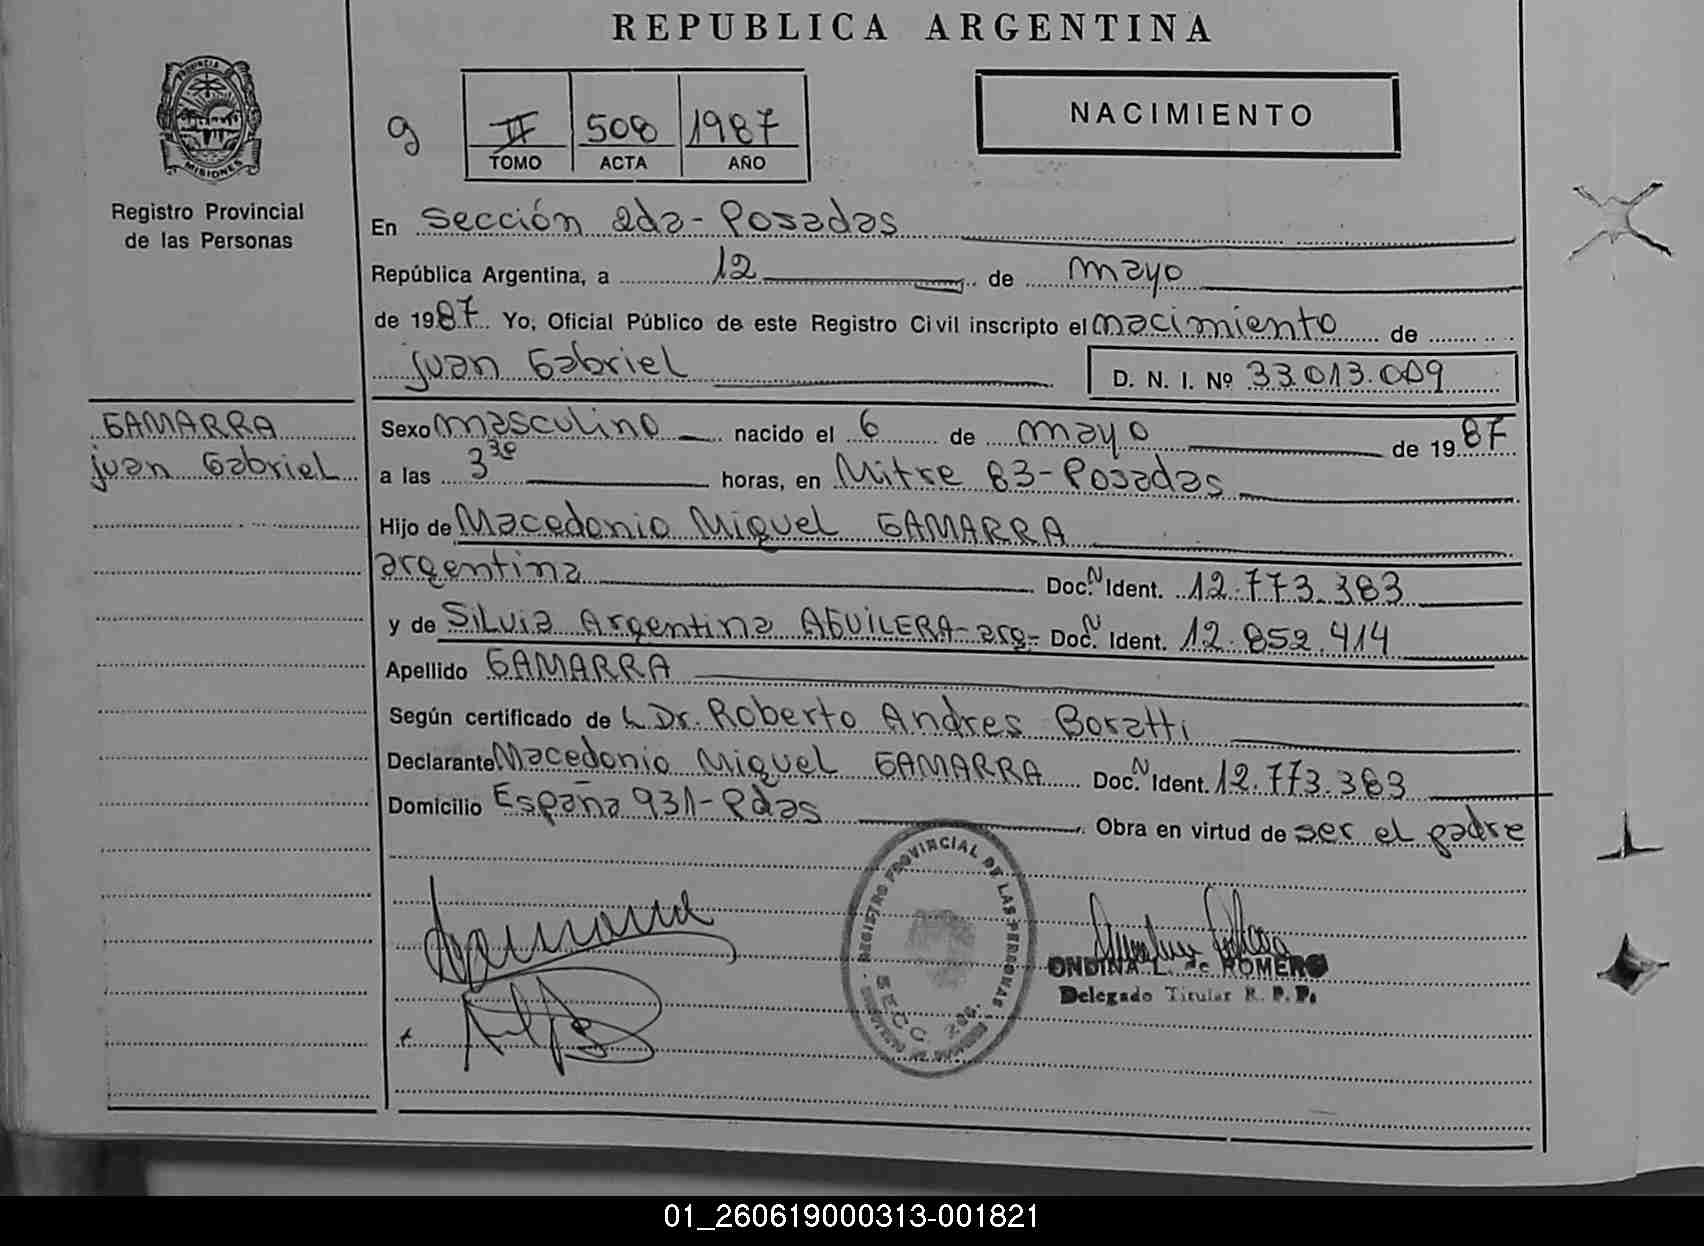 REPUBLICA ARGENTINA
PROVINCIA DE
MISIONES
Registro Provincial
de las Personas
g
II 508 1987
TOMO ACTA AÑO
NACIMIENTO
En Sección 2da - Posadas
República Argentina, a 12 de mayo
de 1987. Yo, Oficial Público de este Registro Civil inscripto el nacimiento de
juan Gabriel
D. N. I. Nº 33.013.009
GAMARRA
juan Gabriel
Sexo masculino nacido el 6 de mayo de 1987
a las 3 30 horas, en Mitre 83 - Posadas
Hijo de Macedonio Miguel GAMARRA
argentina Doc. N Ident. 12.773.383
y de Silvia Argentina AGUILERA - arg - Doc. N Ident. 12.852.414
Apellido GAMARRA
Según certificado de L Dr. Roberto Andres Boratti
Declarante Macedonio Miguel GAMARRA Doc. N Ident. 12.773.383
Domicilio España 931 - Pdas Obra en virtud de ser el padre
REGISTRO PROVINCIAL DE LAS PERSONAS
SECC 2da.
Gamarra
ONDINA L. de ROMERO
Delegado Titular R. P. P.
01_260619000313-001821